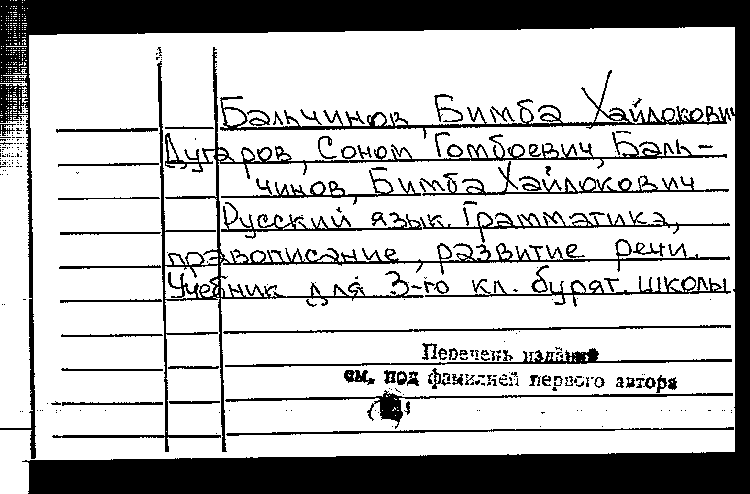 Бальчинов, Бимба Хайлокович
Дугаров, Соном Гомбоевич, Баль-
чинов, Бимба Хайлокович
Русский язык. Грамматика,
правописание, развитие речи.
Учебник для 3-го кл. бурят. школы.
Перечень изданий
см. под фамилией первого автора